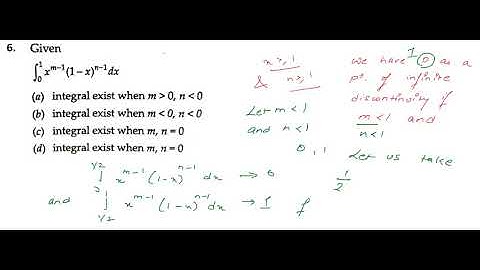 6. Given
∫₀¹ x^{m-1}(1-x)^{n-1}dx
(a) integral exist when m > 0, n < 0
(b) integral exist when m < 0, n < 0
(c) integral exist when m, n = 0
(d) integral exist when m, n = 0
& n ≥, 1
Let m < 1
and n < 1
0, 1
we have 1 0 as a
pt. of infinite
discontinuity if
m < 1 and
n < 1
Let us take
1/2
∫ 0 1/2 x^{m-1} (1-x)^{n-1} dx → 0
and ∫ 1/2 1 x^{m-1} (1-x)^{n-1} dx → 1